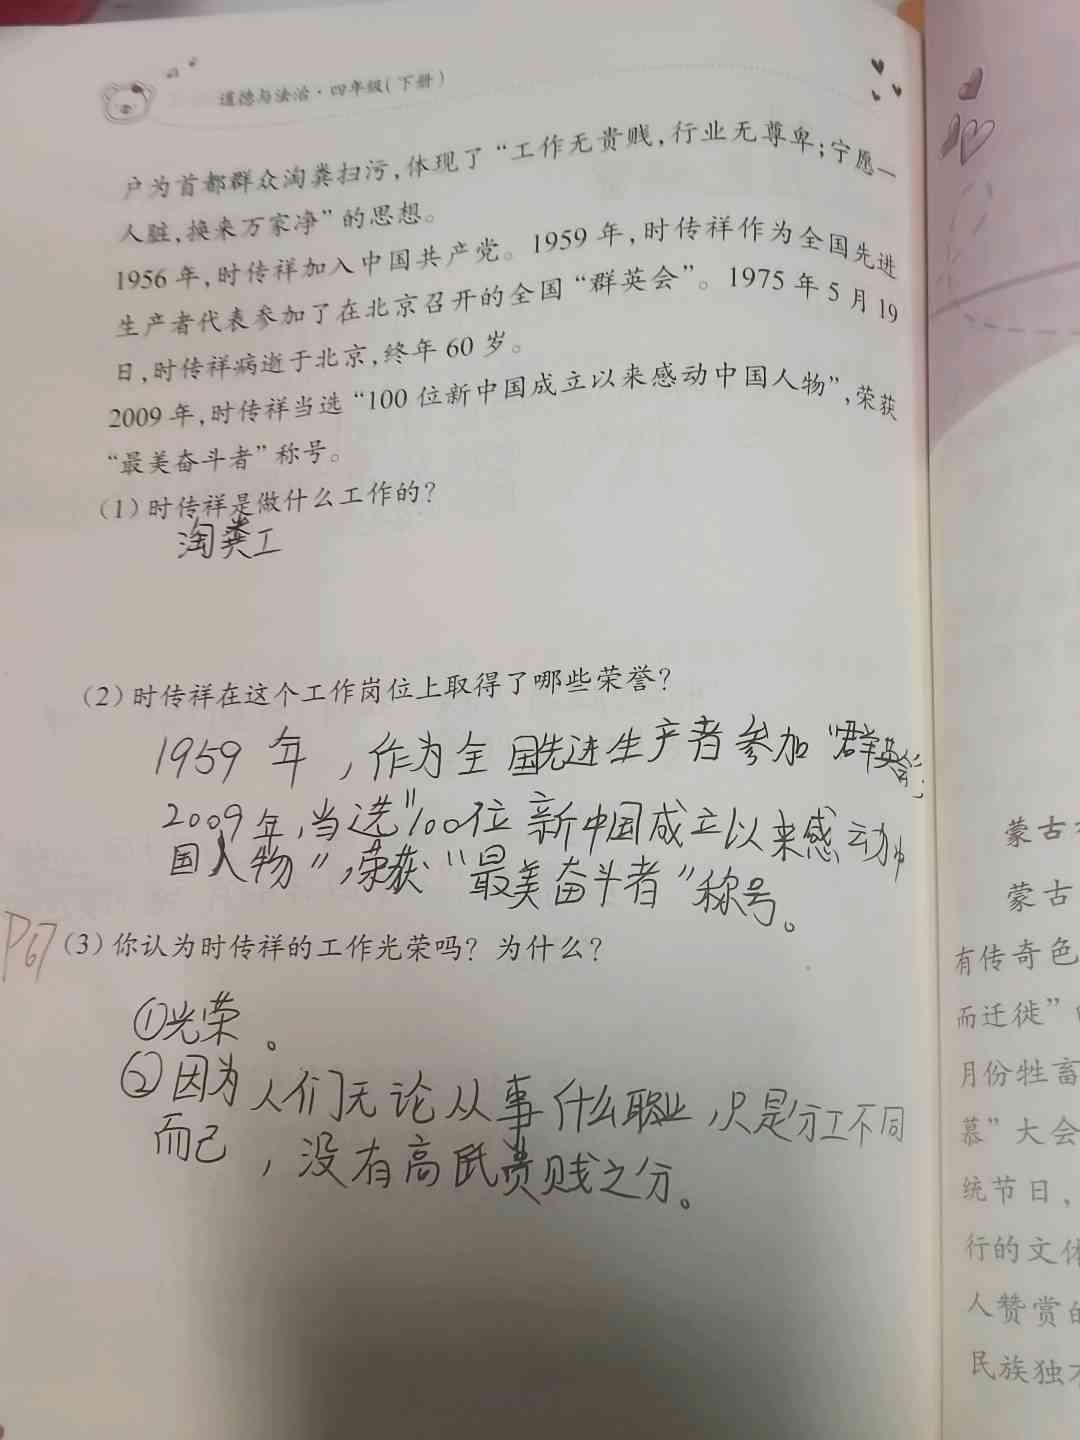 道德与法治·四年级(下册)
户为首都群众淘粪扫污,体现了“工作无贵贱,行业无尊卑;宁愿一
人脏,换来万家净”的思想。
1956年,时传祥加入中国共产党。1959年,时传祥作为全国先进
生产者代表参加了在北京召开的全国“群英会”。1975年5月19
日,时传祥病逝于北京,终年60岁。
2009年,时传祥当选“100位新中国成立以来感动中国人物”,荣获
“最美奋斗者”称号。
(1)时传祥是做什么工作的?
淘粪工
(2)时传祥在这个工作岗位上取得了哪些荣誉?
1959年,作为全国先进生产者参加“群英会
2009年,当选“100位新中国成立以来感动中
国人物”,荣获“最美奋斗者”称号。
P67
(3)你认为时传祥的工作光荣吗?为什么?
①光荣。
②因为人们无论从事什么职业,只是分工不同
而己,没有高民贵贱之分。
蒙古
蒙古
有传奇色
而迁徙”
月份牲畜
慕”大会
统节日,
行的文体
人赞赏的
民族独